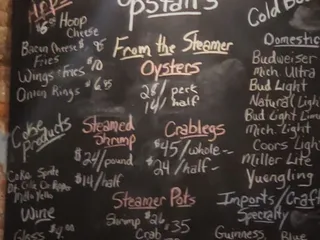 Apps
Upstairs
Cold Be
$6.95 Hoop
Cheese
Bacon Cheese $ 8
Fries
Wings + Fries $10
Onion Rings $ 6.95
From the Steamer
Oysters
28/ peck
14/ half
Domestic
Budweiser
Mich. Ultra
Bud Light
Natural Light
Bud Light Lime
Mich. Light
Coors Light
Miller Lite
Yuengling
Coke
Products
Coke Sprite
Mello Yello
Wine
Glass $4.00
Steamed
Shrimp
$24/pound
$14/half
Crablegs
$45/whole
$24/half
Steamer Pots
Shrimp $26
Crab $35
Imports/Craft
Specialty
Guinness Blue